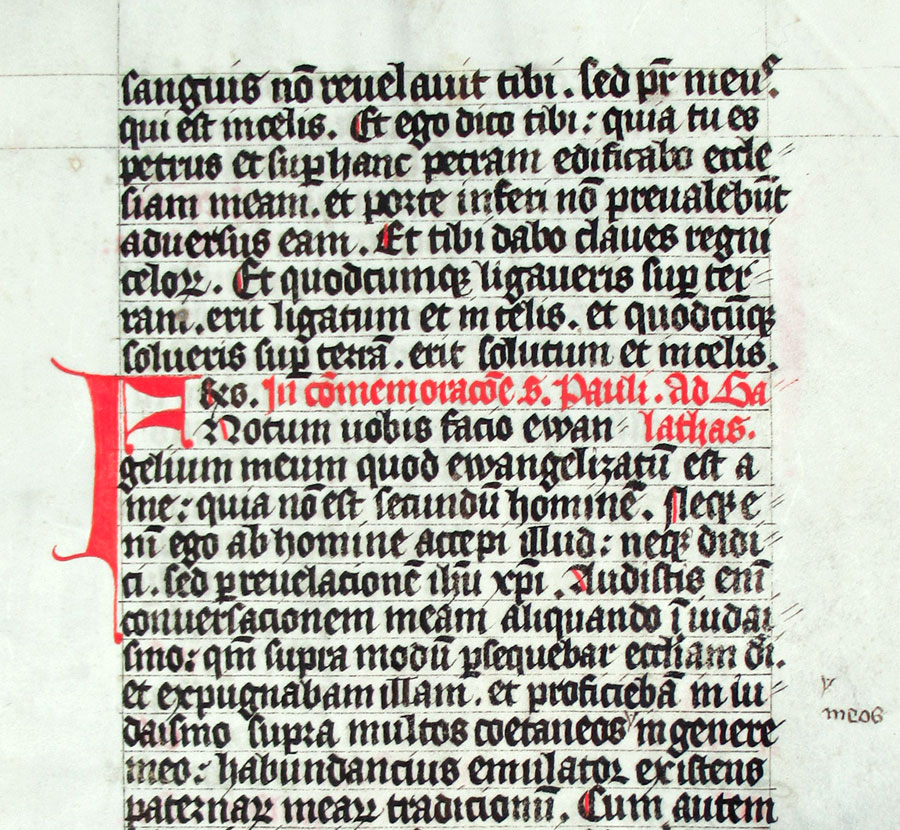 sanguis nō reuelauit tibi . sed pr̄ meus.
qui est in celis. Et ego dico tibi : quia tu es
petrus et suꝑ hanc petram edificabo eccle
siam meam. et porte inferi nō preualebūt
aduersus eam . Et tibi dabo claues regni
celoꝝ. Et quodcumqꝫ ligaueris suꝑ ter
ram. erit ligatum et in celis. et quodcūqꝫ
solueris suꝑ terrā. erit solutum et in celis.
In cōmemoracōe s. Pauli . Ad Ga
Fr̄es. Notum uobis facio ewan lathas.
gelium meum quod ewangelizatū est a
me : quia nō est secundū hominē. Neqꝫ e
nī ego ab homine accepi illud : neqꝫ didi
ci. sed ꝑ reuelacionē ihū xp̄i . Audistis enī
conuersacionem meam aliquando ī iudai
smo : qm̄ supra modū ꝑsequebar eccliam dī.
et expugnabam illam. et proficiebā in iu
daismo supra multos coetaneos in genere
meos
meo : habundancius emulatoꝛ existens
paternaꝝ meaꝝ tradicionū. Cum autem